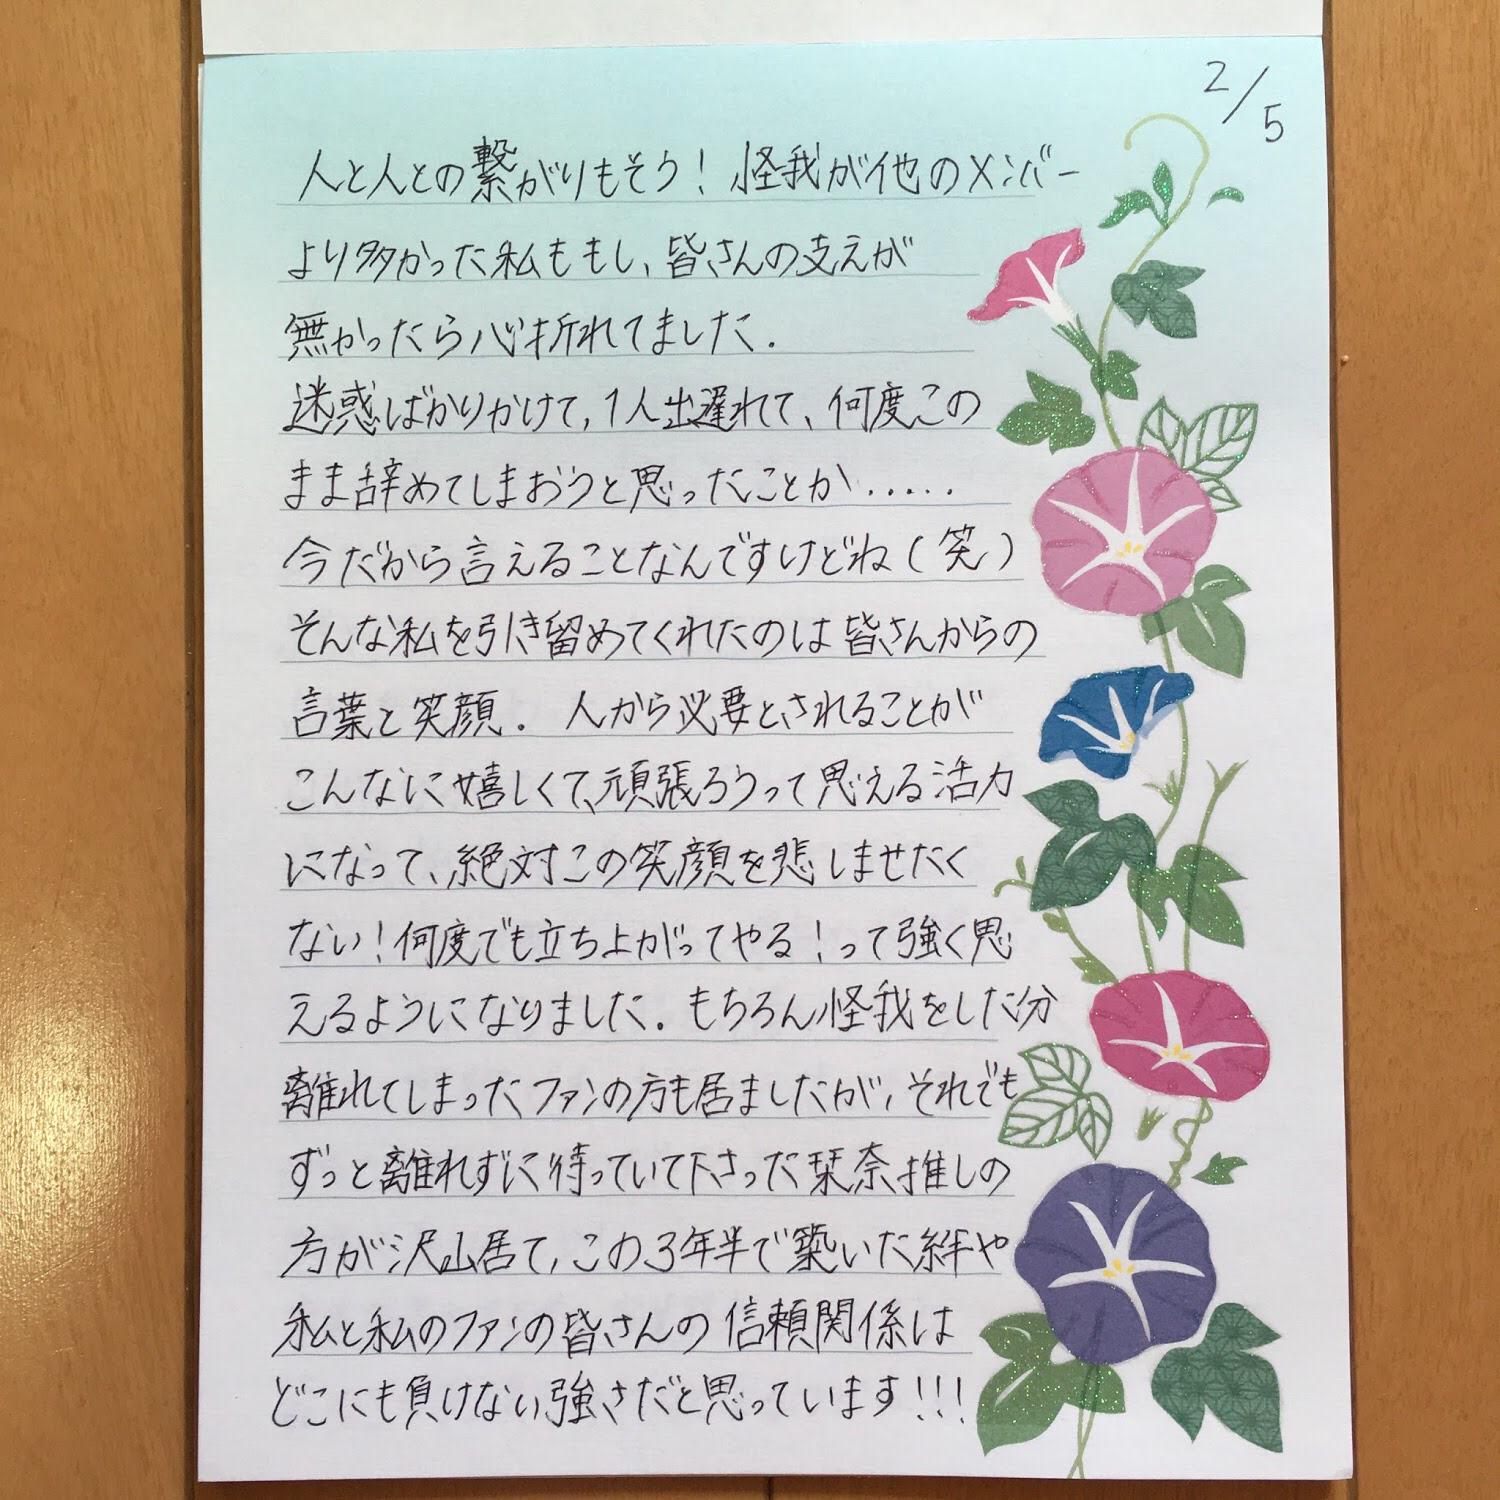 2/5
人と人との繋がりもそう！怪我が他のメンバー
より多かった私ももし、皆さんの支えが
無かったら心折れてました.
迷惑ばかりかけて,1人出遅れて、何度この
まま辞めてしまおうと思ったことか.....
今だから言えることなんですけどね(笑)
そんな私を引き留めてくれたのは皆さんからの
言葉と笑顔. 人から必要とされることが
こんなに嬉しくて、頑張ろうって思える活力
になって、絶対この笑顔を悲しませたく
ない！何度でも立ち上がってやる！って強く思
えるようになりました. もちろん怪我をした分
離れてしまったファンの方も居ましたが,それでも
ずっと離れずに待っていて下さった栞奈推しの
方が沢山居て,この3年半で築いた絆や
私と私のファンの皆さんの信頼関係は
どこにも負けない強さだと思っています!!!